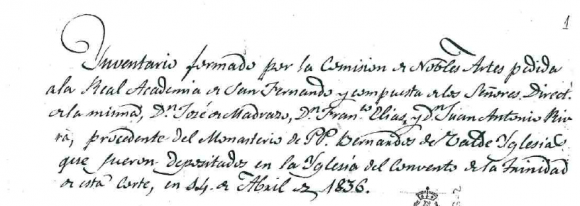 1
Inventario formado por la Comision de Nobles Artes pedida
a la Real Academia de San Fernando y compuesta de los Señores Direct.
de la misma, Dn. José de Madrazo, Dn. Franco. Elias, y Dn. Juan Antonio Rive
ra, procedente del Monasterio de PP. Bernardos de Valde Yglesias
que fueron depositados en la Yglesia del Convento de la Trinidad
de esta Corte, en 14. de Abril de 1836.